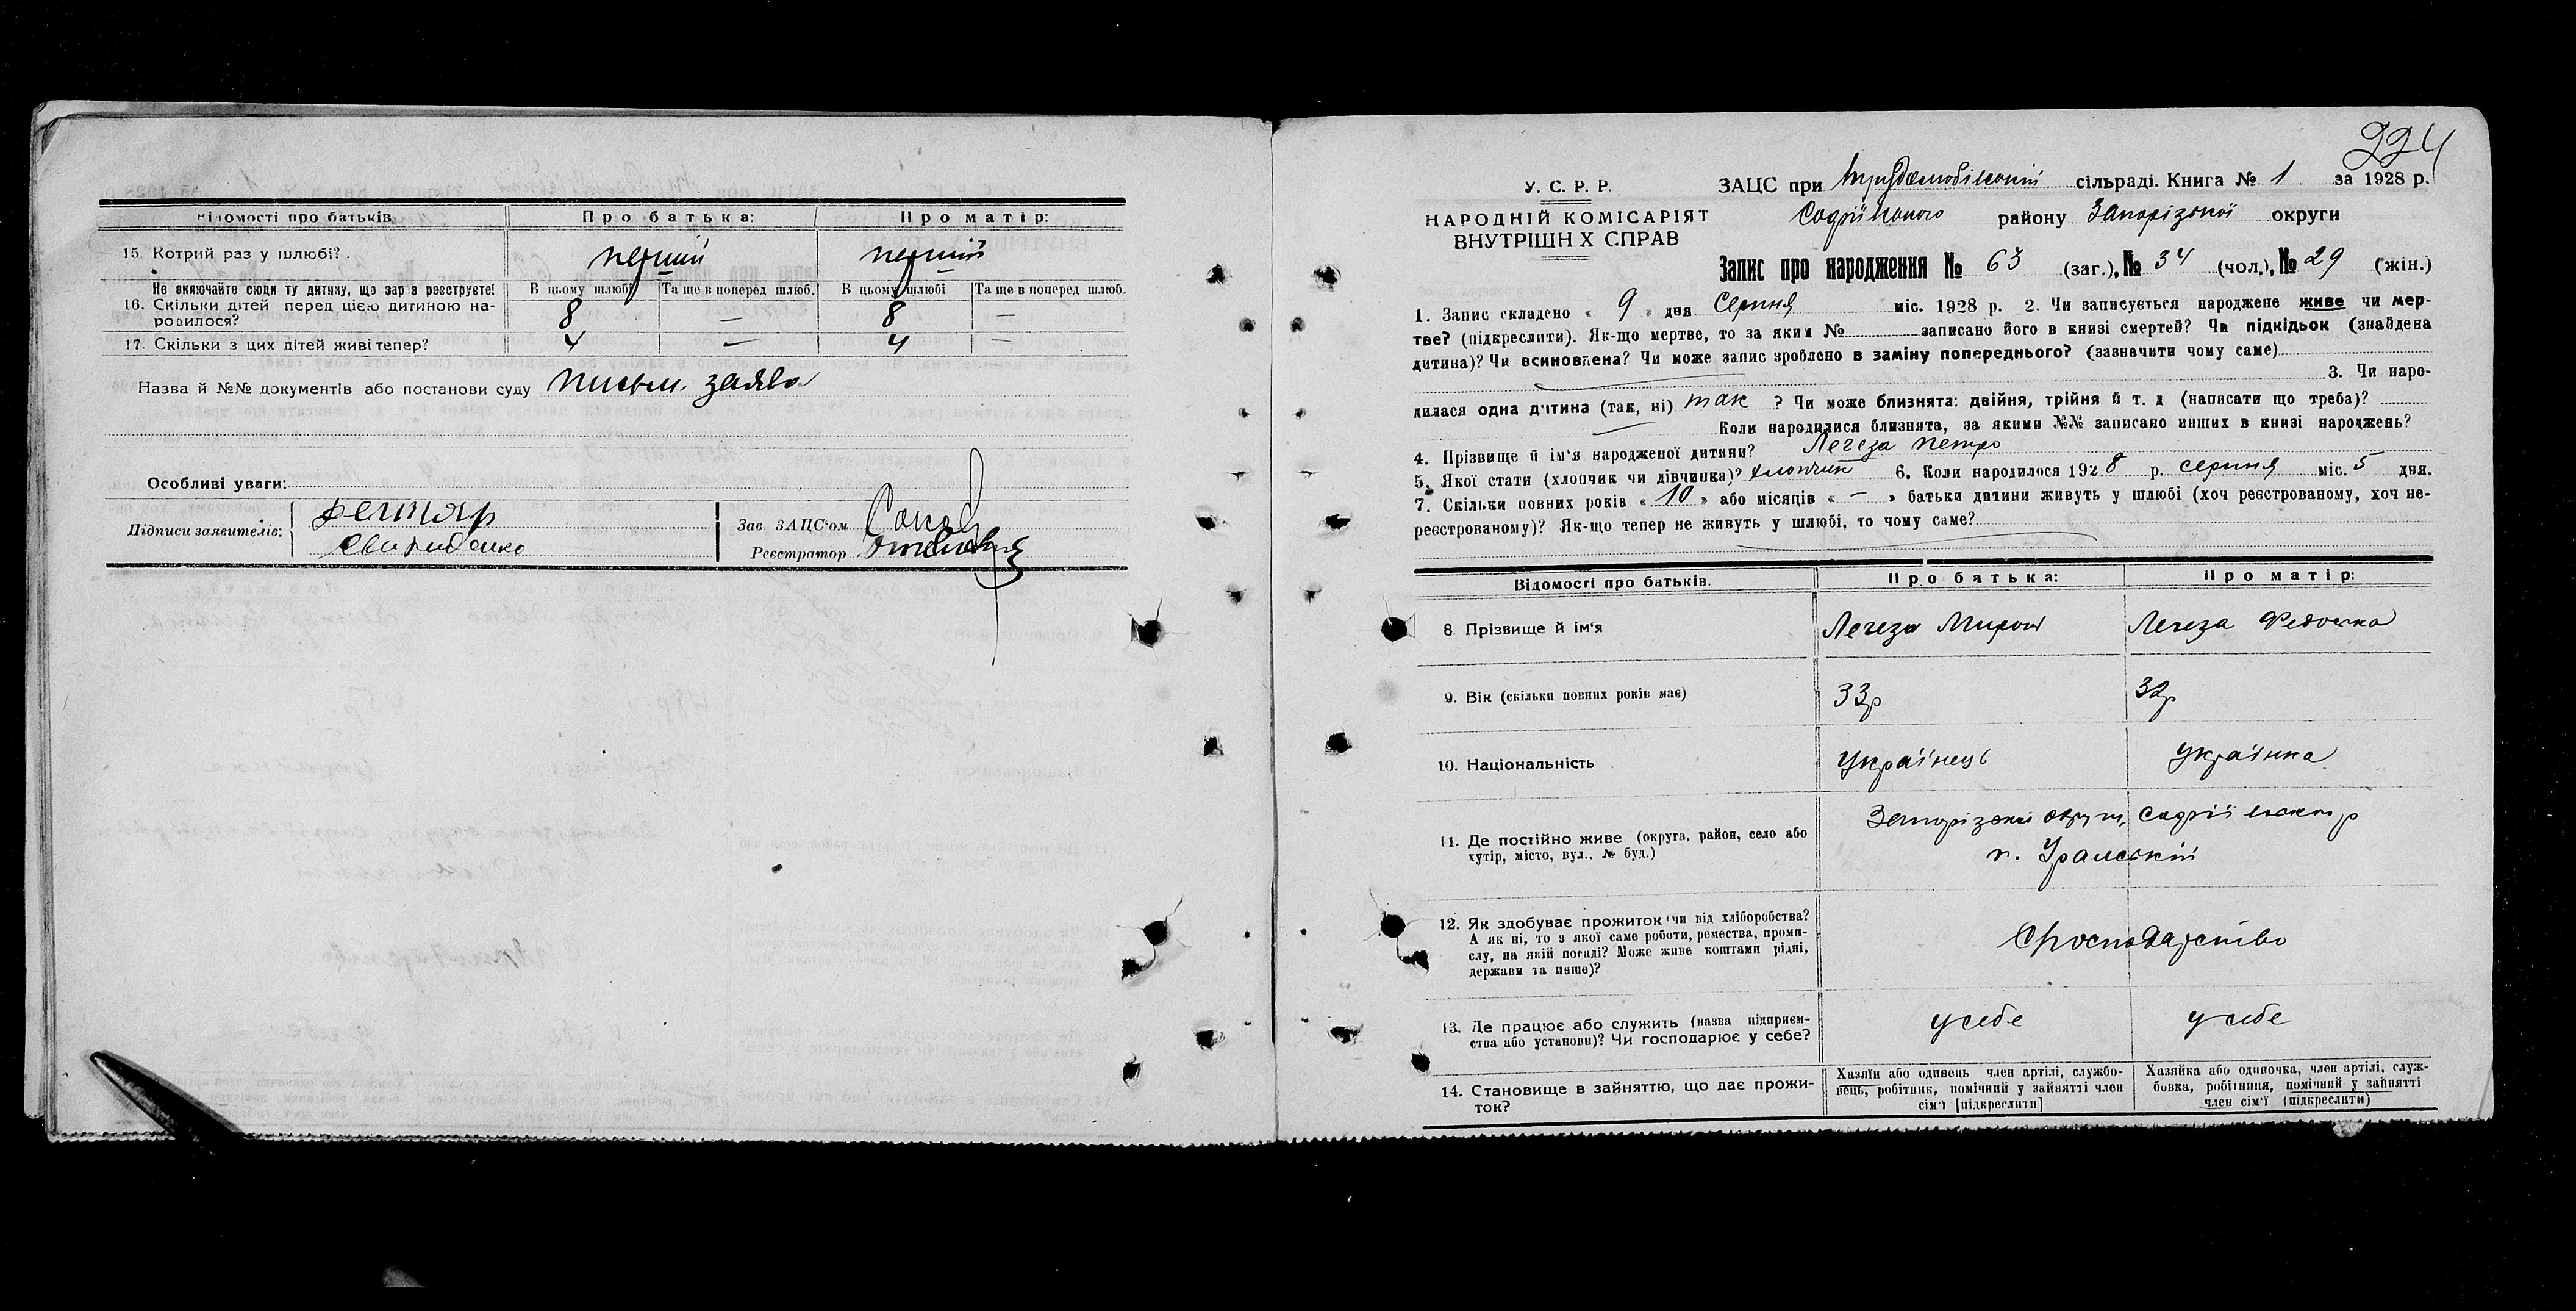 Відомості про батьків
Про батька:
Про матір:
15. Котрий раз у шлюбі?
перший
перший
Не включайте сюди ту дитину, що зараз реєструєте!
В цьому шлюбі
Та ще в поперед шлюб.
В цьому шлюбі
Та ще в поперед шлюб.
16. Скільки дітей перед цією дитиною на-
родилося?
8
—
8
—
17. Скільки з цих дітей живі тепер?
4
—
4
—
Назва й №№ документів або постанови суду письм. заява
Особливі уваги:
Підписи заявителів:
Зав ЗАЦС'ом
Реєстратор
224
У. С. Р. Р.
НАРОДНІЙ КОМІСАРІЯТ
ВНУТРІШН Х СПРАВ
ЗАЦС при сільраді. Книга № 1 за 1928 р.
Софіївського району Запорізької округи
Запис про народження № 63 (заг.), № 34 (чол.), № 29 (жін.)
1. Запис складено « 9 » дня Серпня міс. 1928 р. 2. Чи записується народжене живе чи мер-
тве? (підкреслити). Як-що мертве, то за яким № записано його в книзі смертей? Чи підкідьок (знайдена
дитина)? Чи всиновлена? Чи може запис зроблено в заміну попереднього? (зазначити чому саме)
3. Чи наро-
дилася одна дитина (так, ні) так ? Чи може близнята: двійня, трійня й т. д (написати що треба)?
Коли народилися близнята, за якими №№ записано инших в книзі народжень?
4. Прізвище й ім'я народженої дитини? Легеза Петро
5. Якої стати (хлопчик чи дівчинка)? хлопчик 6. Коли народилося 1928 р. серпня міс. 5 дня.
7. Скільки повних років « 10 » або місяців « — » батьки дитини живуть у шлюбі (хоч реєстрованому, хоч не-
реєстрованому)? Як-що тепер не живуть у шлюбі, то чому саме?
Відомості про батьків.
Про батька:
Про матір:
8. Прізвище й ім'я
Легеза Мирон
Легеза Федоська
9. Вік (скільки повних років має)
33р
32р
10. Національність
Українець
Українка
11. Де постійно живе (округа, район, село або
хутір, місто, вул., № буд.)
Запорізької округи, Софіївського р
12. Як здобуває прожиток чи від хліборобства?
А як ні, то з якої саме роботи, ремества, проми-
слу, на якій посаді? Може живе коштами рідні,
держави та инше)?
Сільгосподарство
13. Де працює або служить (назва підприєм-
ства або установи)? Чи господарює у себе?
у себе
у себе
14. Становище в зайняттю, що дає прожи-
ток?
Хазяїн або одинець член артілі, службо-
вець, робітник, помічний у зайнятті член
сім'ї [підкреслити]
Хазяйка або одиночка, член артілі, служ-
бовка, робітниця, помічний у зайнятті
член сім'ї (підкреслити)